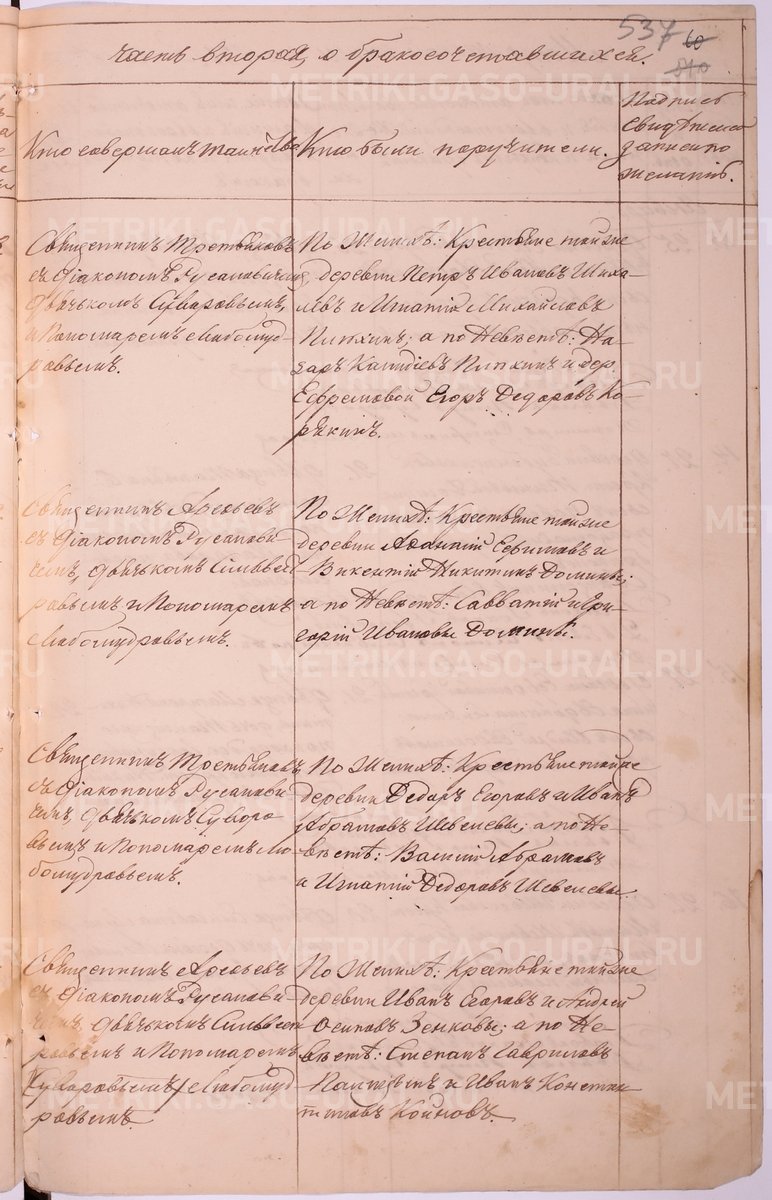 537 60
810
часть вторая, о бракосочетавшихся.
Кто совершалъ таинства
Кто были поручители.
Подпись
свидѣтелей
записи по
желанію.
Священникъ Третьяковъ
съ Діакономъ Русановичемъ
дьячькомъ Суваровымъ,
и Пономаремъ Любомуд-
ровымъ.
По Женихѣ: Крестьяне тойже
деревни Петръ Ивановъ Шиха-
левъ и Игнатій Михайловъ
Пипкинъ; а по Невѣстѣ: На-
заръ Пипкинъ и дер.
Ефремовой Егоръ Ѳедоровъ Ко-
рѣкинъ.
Священникъ Арсеньевъ
съ Діакономъ Русанови-
чемъ, дьячькомъ Сильвест
ровымъ и Пономаремъ
Любомудровымъ.
По Женихѣ: Крестьяне тойже
деревни Ефимовъ и
Викентій Никитинъ Домины;
а по Невѣстѣ: Савватій и Гри-
горій Ивановы Домины.
Священникъ Третьяковъ
съ Діакономъ Русанови
чемъ, дьячькомъ Суворо
вымъ и Пономаремъ Лю-
бомудровымъ.
По Женихѣ: Крестьяне тойже
деревни Ѳедоръ Егоровъ и Иванъ
Абрамовъ Шевелевы; а по Не-
вѣстѣ: Василій Абрамовъ
и Игнатій Ѳедоровъ Шевелевы.
Священникъ Арсеньевъ
съ Діакономъ Русанови-
чемъ, дьячькомъ Сильвест
ровымъ и Пономаремъ
(Суваровымъ) Любомуд
ровымъ.
По Женихѣ: Крестьяне тойже
деревни Иванъ Егоровъ и Андрей
Осиповъ Зенковы; а по Не-
вѣстѣ: Степанъ Гавриловъ
и Иванъ Констан
тиновъ Койновъ.
METRIKI.GASO-URAL.RU